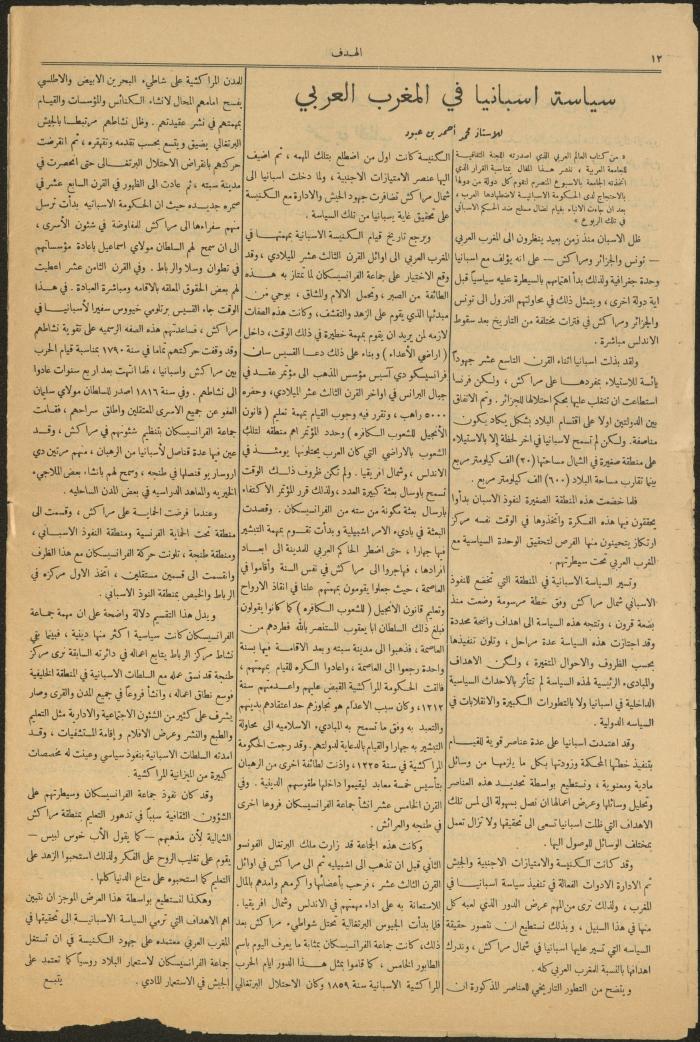 ١٢
الهدف
سياسة اسبانيا في المغرب العربي
للاستاذ محمد أحمد بن عبود
« من كتاب العالم العربي الذي اصدرته اللجنة الثقافية
للجامعة العربية ، ننشر هذا المقال بمناسبة القرار الذي
اتخذته الجامعة بالاسبوع المنصرم لتقوم كل دولة من دولها
بالاحتجاج لدى الحكومة الاسبانية لاضطهادها العرب ،
بعد ان جاءت الانباء بقيام نضال مسلح ضد الحكم الاسباني
في تلك الربوع »
ظل الاسبان منذ زمن بعيد ينظرون الى المغرب العربي
— تونس والجزائر ومراكش — على انه يؤلف مع اسبانيا
وحدة جغرافية ولذلك بدأ اهتمامهم بالسيطرة عليه سياسياً قبل
اية دولة اخرى ، ويتمثل ذلك في محاولتهم النزول الى تونس
والجزائر ومراكش في فترات مختلفة من التاريخ بعد سقوط
الاندلس مباشرة .
ولقد بذلت اسبانيا اثناء القرن التاسع عشر جهوداً
يائسة للاستيلاء بمفردها على مراكش ، ولكن فرنسا
استطاعت ان تتغلب عليها بحكم احتلالها للجزائر . وتم الاتفاق
بين الدولتين اولا على اقتسام البلاد بشكل يكاد يكون
مناصفة . ولكن لم تسمح لاسبانيا في اخر لحظة إلا بالاستيلاء
على منطقة صغيرة في الشمال مساحتها (٣٠) الف كيلومتر مربع
بينما تقارب مساحة البلاد (٦٠٠) الف كيلومتر مربع .
فلما خضعت هذه المنطقة الصغيرة لنفوذ الاسبان بدأوا
يحققون فيها هذه الفكرة واتخذوها في الوقت نفسه مركز
ارتكاز يتحينون منها الفرص لتحقيق الوحدة السياسية مع
المغرب العربي تحت سيطرتهم .
وتسير السياسة الاسبانية في المنطقة التي تخضع للنفوذ
الاسباني شمال مراكش وفق خطة مرسومة وضعت منذ
بضعة قرون ، وتتجه هذه السياسة الى اهداف واضحة محددة
وقد اجتازت هذه السياسة عدة مراحل ، وتلون تنفيذها
بحسب الظروف والاحوال المتغيرة ، ولكن الاهداف
والمبادىء الرئيسية لهذه السياسة لم تتأثر بالاحداث السياسية
الداخلية في اسبانيا ولا بالتطورات الكبيرة والانقلابات في
السياسه الدولية .
وقد اعتمدت اسبانيا على عدة عناصر قوية للقيام
بتنفيذ خطتها المحكمة وزودتها بكل ما يلزمها من وسائل
مادية ومعنوية ، ونستطيع بواسطة تحديد هذه العناصر
وتحليل وسائلها وعرض اعمالها ان نصل بسهولة الى لمس تلك
الاهداف التي ظلت اسبانيا تسعى الى تحقيقها ولا تزال تعمل
بمختلف الوسائل للوصول اليها .
وقد كانت الكنيسة والامتيازات الاجنبية والجيش
ثم الادارة الادوات الفعالة في تنفيذ سياسة اسبانيا في
المغرب ، ولذلك نرى من المهم عرض الدور الذي لعبه كل
منها في هذا السبيل ، وبذلك نستطيع ان نتصور حقيقة
السياسه التي تسير عليها اسبانيا في شمال مراكش ، وندرك
اهدافها بالنسبة للمغرب العربي كله .
ويتضح من التطور التاريخي للعناصر المذكورة ان
الكنيسة كانت اول من اضطلع بتلك المهمه ، ثم اضيف
اليها عنصر الامتيازات الاجنبية ، ولما دخلت اسبانيا الى
شمال مراكش تضافرت جهود الجيش والادارة مع الكنيسة
على تحقيق غاية بسبانيا من تلك السياسة .
ويرجع تاريخ قيام الكنيسة الاسبانية بمهمتها في
المغرب العربي الى اوائل القرن الثالث عشر الميلادي ، وقد
وقع الاختيار على جماعة الفرنسيسكان لما تمتاز به هذه
الطائفة من الصبر ، وتحمل الالام والمشاق ، بوحي من
مبدئها الذي يقوم على الزهد والتقشف ، وكانت هذه الصفات
لازمه لمن يريد ان يقوم بمهمة خطيرة في ذلك الوقت ، داخل
( اراضي الأعداء ) وبناء على ذلك دعا القسيس سان
فرانسيسكو دي آسيس مؤسس المذهب الى مؤتمر عقد في
جبال البرانس في اواخر القرن الثالث عشر الميلادي ، وحضره
٥٠٠٠ راهب ، وتقرر فيه وجوب القيام بمهمة تعليم ( قانون
الانجيل للشعوب الكافره ) وحدد المؤتمر اهم منطقه لتلك
الشعوب بالاراضي التي كان العرب يحتلونها يومئذ في
الاندلس ، وشمال افريقيا . ولم تكن ظروف ذلك الوقت
تسمح بارسال بعثة كبيرة العدد ، ولذلك قرر المؤتمر الاكتفاء
بارسال بعثة مكونة من سته من الفرنسيسكان . وقصدت
البعثة في باديء الامر اشبيلية و بدأت تقوم بمهمة التبشير
فيها جهارا ، حتى اضطر الحاكم العربي للمدينة الى ابعاد
افرادها ، فهاجروا الى مراكش في نفس السنة وأقاموا في
العاصمة ، حيث جعلوا يقومون بمهمتهم علنا في انقاذ الارواح
وتعليم قانون الانجيل ( للشعوب الكافره ) كما كانوا يقولون
فبلغ ذلك السلطان ابا يعقوب المستنصر بالله فطردهم من
العاصمة ، فذهبوا الى مدينة سبته وبعد الاقامة فيها بسنة
واحدة رجعوا الى العاصمة ، واعادوا الكره للقيام بمهمتهم ،
فالقت الحكومة المراكشية القبض عليهم واعدمتهم سنة
١٢١٢ ، وكان سبب الاعدام هو تجاوزهم حد اعتقادهم بدينهم
والتعبد به وفق ما تسمح به المباديء الاسلاميه الى محاولة
التبشير به جهارا والقيام بالدعاية لدولتهم . وقد رجعت الحكومة
المراكشية في سنة ١٢٢٥ ، واذنت لطائفة اخرى من الرهبان
بتأسيس خمسة معابد ليقيموا داخلها طقوسهم الدينية . وفي
القرن الخامس عشر انشأ جماعة الفرانسيسكان فروعا اخرى
في طنجه والعرائش .
وكانت هذه الجماعة قد زارت ملك البرتغال الفونسو
الثاني قبل ان تذهب الى اشبيليه ثم الى مراكش في اوائل
القرن الثالث عشر ، فرحب بأعضائها واكرمهم وامدهم بالمال
للاستعانة به على اداء مهمتهم في الاندلس وشمال افريقيا .
فلما بدأت الجيوس البرتغالية تحتل شواطيء مراكش بعد
ذلك ، كانت جماعة الفرانسيسكان بمثابة ما يعرف اليوم باسم
الطابور الخامس ، كما قاموا بمثل هذا الدور ايام الحرب
المراكشية الاسبانية سنة ١٨٥٩ وكان الاحتلال البرتغالي
للمدن المراكشية على شاطيء البحرين الابيض والاطلسي
يفسح امامهم المجال لانشاء الكنائس والمؤسسات والقيام
بمهمتهم في نشر عقيدتهم . وظل نشاطهم مرتبطا بالجيش
البرتغالي يضيق ويتسع بحسب تقدمه وتقهقره ، ثم انقرضت
حركتهم بانقراض الاحتلال البرتغالى حتى انحصرت في
مدينة سبته ، ثم عادت الى الظهور في القرن السابع عشر في
صوره جديده حيث ان الحكومة الاسبانيه بدأت ترسل
منهم سفراءها الى مراكش للمفاوضة في شئون الأسرى ،
الى ان سمح لهم السلطان مولاي اسماعيل باعادة مؤسساتهم
في تطوان وسلا والرباط . وفي القرن الثامن عشر اعطيت
لهم بعض الحقوق المتعلقه بالاقامه ومباشرة العبادة . في هذا
الوقت جاء القسيس برتلومي خيبوس سفيراً لأسبانيا في
مراكش ، فساعدتهم هذه الصفه الرسميه على تقوية نشاطهم
وقد وقفت حركتهم تماما في سنة ١٧٩٠ بمناسبة قيام الحرب
بين مراكش واسبانيا ، فلما انتهت بعد اربع سنوات عادوا
الى نشاطهم . وفي سنة ١٨١٦ اصدر السلطان مولاي سليمان
العفو عن جميع الاسرى المعتقلين واطلق سراحهم ، فقامت
جماعة الفرانسيسكان بتنظيم شئونهم في مراكش ، وقد
عين فيها عدة قناصل لأسبانيا من الرهبان ، منهم مرتين دي
اروساريو قنصلها في طنجه ، وسمح لهم بانشاء بعض الملاجيء
الخيريه والمعاهد الدراسيه في بعض المدن الساحليه .
وعندما فرضت الحماية على مراكش ، وقسمت الى
منطقة تحت الحماية الفرنسية ومنطقة النفوذ الاسباني ،
ومنطقة طنجة ، تلونت حركة الفرانسيسكان مع هذا الظرف
وانقسمت الى قسمين مستقلين ، اتخذ الاول مركزه في
الرباط والخيص بمنطقة النوذ الاسباني .
ويدل هذا التقسيم دلالة واضحة على ان مهمة جماعة
الفرانسيسكان كانت سياسية اكثر منها دينية ، فبينما بقي
نشاط مركز الرباط يتابع اعماله في دائرته السابقة نرى مركز
طنجة قد نسق عمله مع السلطات الاسبانية في المنطقة الخليفية
فوسع نطاق اعماله ، وانشأ فروعاً في جميع المدن والقرى وصار
يشرف على كثير من الشئون الاجتماعية والادارية مثل التعليم
والطبع والنشر وعرض الافلام ، وإقامة المستشفيات ، وقد
امدته السلطات الاسبانية بنفوذ سياسي وعينت له مخصصات
كبيرة من الميزانية المراكشية .
وقد كان نفوذ جماعة الفرانسيسكان وسيطرتهم على
الشؤون الثقافية سبباً في تدهور التعليم بمنطقة مراكش
الشمالية لأن مذهبهم — كما يقول الأب خوس لبيس —
يقوم على تغليب الروح على الفكر ولذلك استحبوا الزهد على
التعليم كما استحبوه على متاع الدنيا كلها .
وهكذا نستطيع بواسطة هذا العرض الموجز ان نتبين
اهم الاهداف التي ترمي السياسة الاسبانية الى تحقيقها في
المغرب العربي معتمده على جهود الكنيسة في ان تستغل
جماعة الفرانسيسكان لاستعمار البلاد روسياً كما تعتمد على
الجيش في الاستعمار المادي . يتبع